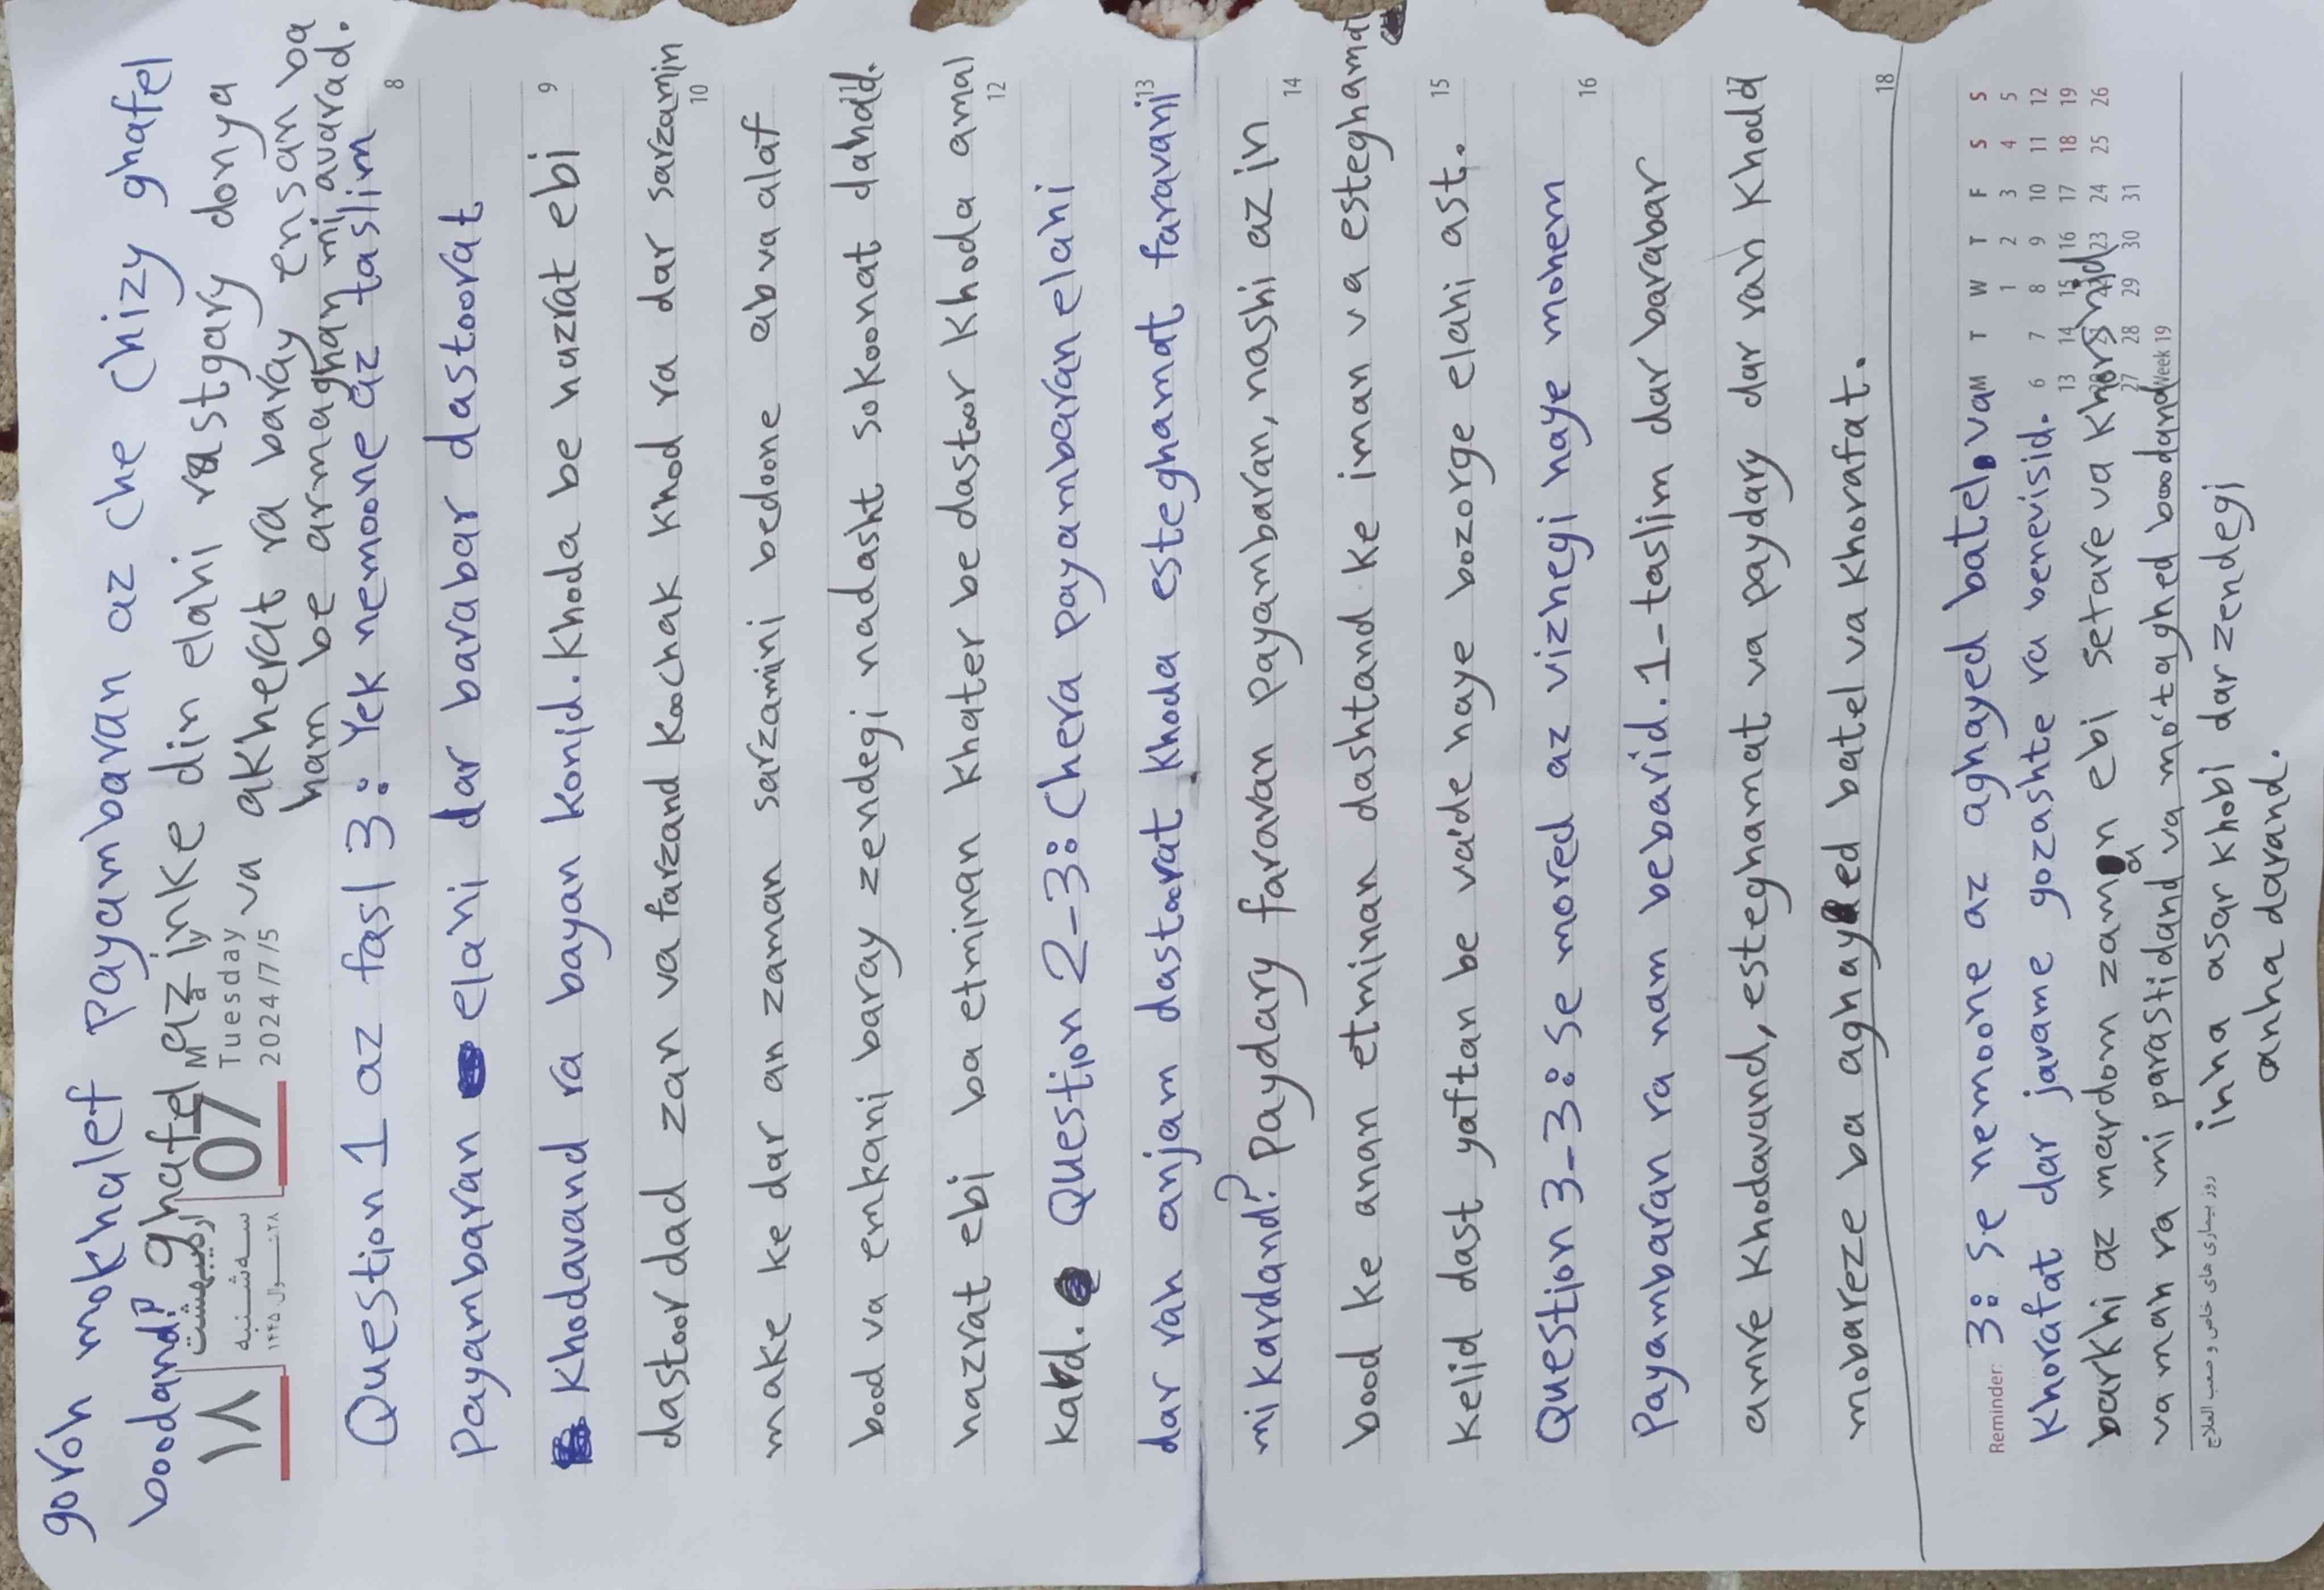 goroh mokhalef payambaran az che chizy ghafel
boodand? ghafel az inke din elahi rastgary donya
va akherat ra baray ensan ba
ham be armaghan mi avarad.
۱۸ اردیبهشت
سه‌شنبه
۲۸ شوال ۱۴۴۵
07 May
Tuesday
2024/7/5
Question 1 az fasl 3: Yek nemoone az taslim
8
Payambaran elahi dar barabar dastoorat
Khodavand ra bayan konid. Khoda be hazrat ebi
9
dastoor dad zan va farzand koochak khod ra dar sarzamin
10
make ke dar an zaman sarzamini bedoone ab va alaf
bood va emkani baray zendegi nadasht sokoonat dahad.
11
hazrat ebi ba etminan khater be dastoor khoda amal
12
kard. Question 2-3: Chera payambaran elahi
dar rah anjam dastoorat khoda esteghamat faravani
13
mi kardand? Paydary faravan payambaran, nashi az in
14
bood ke anan etminan dashtand ke iman va esteghamat
kelid dast yaftan be va'de haye bozorge elahi ast.
15
Question 3-3: Se mored az vizhegi haye mohem
16
Payambaran ra nam bebarid. 1-taslim dar barabar
amre khodavand, esteghamat va paydary dar rah khoda
17
mobareze ba aghayed batel va khorafat.
18
Reminder: 3: Se nemoone az aghayed batel, va
khorafat dar javame gozashte ra benevisid.
barkhi az mardom zaman ebi setare va khorshid
va mah ra mi parastidand va mo'taghed boodand
inha asar khobi dar zendegi
anha darand.
M T W T F S S
1 2 3 4 5
6 7 8 9 10 11 12
13 14 15 16 17 18 19
20 21 22 23 24 25 26
27 28 29 30 31
Week 19
روز بیماری های خاص و صعب العلاج